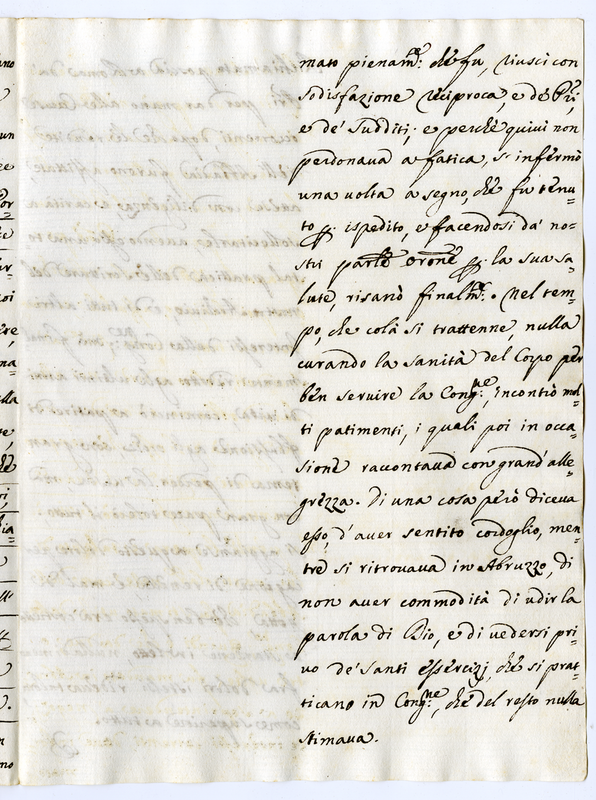 mato pienam.te che fu, riuscì con
sodisfazione reciproca, e de' PP.ri,
e de' sudditi; e perchè quivi non
perdonava a fatica, s'infermò
una volta a segno, che fu tenu=
to p. ispedito, e facendosi da' no=
stri parte orone p. la sua sa=
lute, risanò finalm.te. Nel tem=
po, che colà si trattenne, nulla
curando la sanità del Corpo per
ben servire la Cong.ne, incontrò mol=
ti patimenti, i quali poi in occa=
sione raccontava con grand'alle=
grezza. Di una cosa però diceva
esso, d'aver sentito cordoglio, men=
tre si ritrovava in Abruzzo, di
non aver commodità di udir la
parola di Dio, e di vedersi pri=
vo de' Santi essercizj, che si prat=
ticano in Cong.ne, che del resto nulla
stimava.